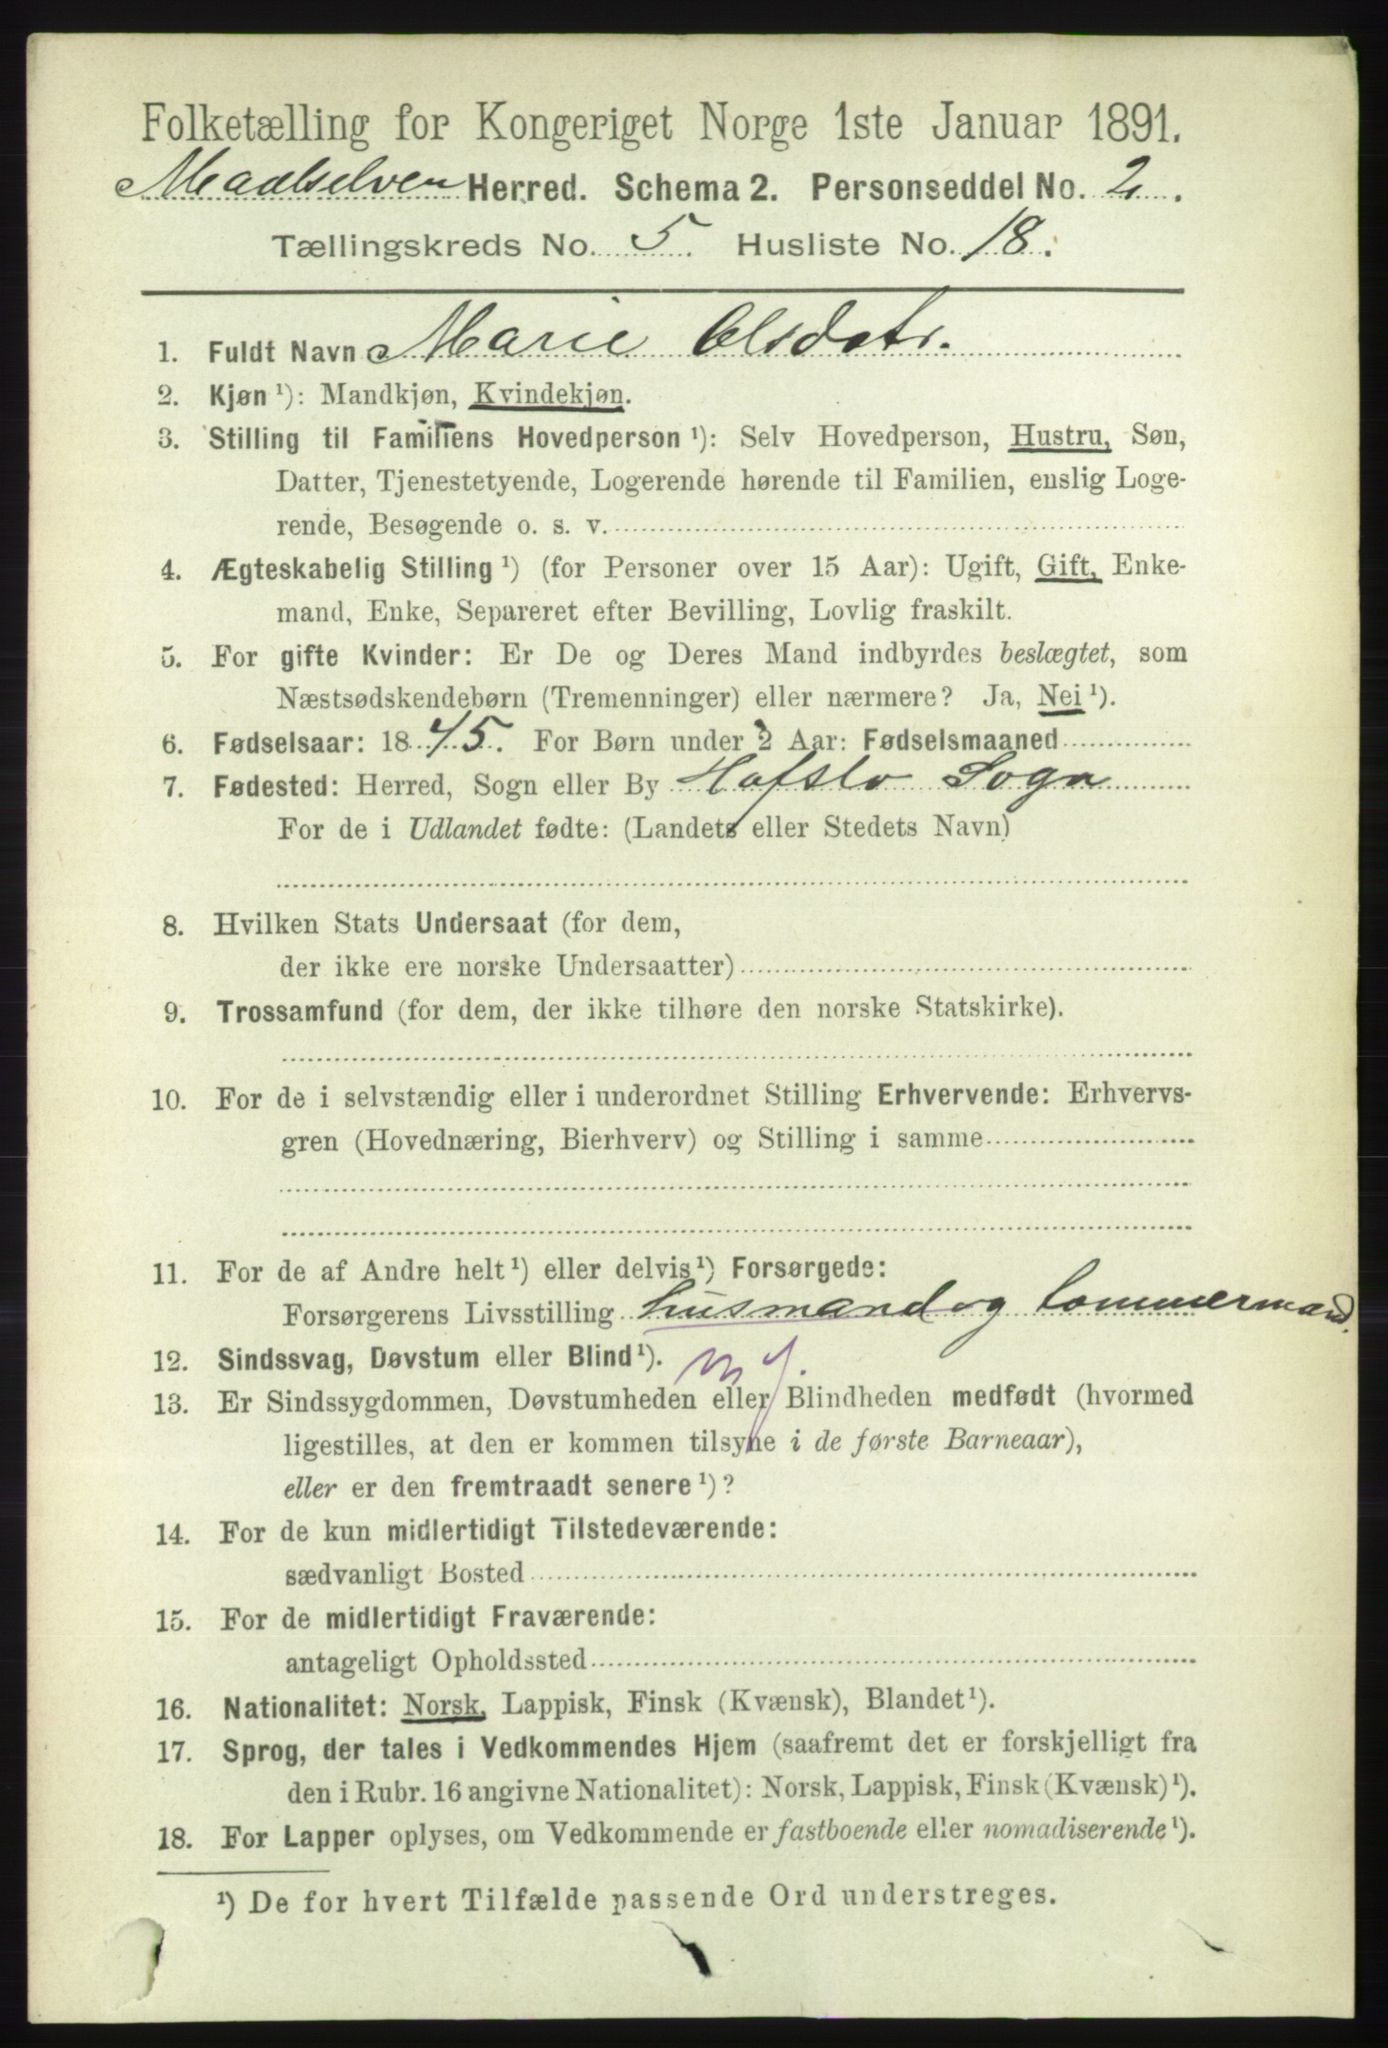 Folketælling for Kongeriget Norge 1ste Januar 1891.
Maalselven Herred. Schema 2. Personseddel No. 2.
Tællingskreds No. 5. Husliste No. 18.
1. Fuldt Navn Marie Olsdatr.
2. Kjøn ¹): Mandkjøn, Kvindekjøn.
3. Stilling til Familiens Hovedperson ¹): Selv Hovedperson, Hustru, Søn,
Datter, Tjenestetyende, Logerende hørende til Familien, enslig Loge-
rende, Besøgende o. s. v.
4. Ægteskabelig Stilling ¹) (for Personer over 15 Aar): Ugift, Gift, Enke-
mand, Enke, Separeret efter Bevilling, Lovlig fraskilt.
5. For gifte Kvinder: Er De og Deres Mand indbyrdes beslægtet, som
Næstsødskendebørn (Tremenninger) eller nærmere? Ja, Nei ¹).
6. Fødselsaar: 1845. For Børn under 2 Aar: Fødselsmaaned
7. Fødested: Herred, Sogn eller By Hafslo Sogn
For de i Udlandet fødte: (Landets eller Stedets Navn)
8. Hvilken Stats Undersaat (for dem,
der ikke ere norske Undersaatter)
9. Trossamfund (for dem, der ikke tilhøre den norske Statskirke).
10. For de i selvstændig eller i underordnet Stilling Erhvervende: Erhvervs-
gren (Hovednæring, Bierhverv) og Stilling i samme
11. For de af Andre helt ¹) eller delvis ¹) Forsørgede:
Forsørgerens Livsstilling husmand og tommermand.
12. Sindssvag, Døvstum eller Blind ¹).
13. Er Sindssygdommen, Døvstumheden eller Blindheden medfødt (hvormed
ligestilles, at den er kommen tilsyne i de første Barneaar),
eller er den fremtraadt senere ¹)?
14. For de kun midlertidigt Tilstedeværende:
sædvanligt Bosted
15. For de midlertidigt Fraværende:
antageligt Opholdssted
16. Nationalitet: Norsk, Lappisk, Finsk (Kvænsk), Blandet ¹).
17. Sprog, der tales i Vedkommendes Hjem (saafremt det er forskjelligt fra
den i Rubr. 16 angivne Nationalitet): Norsk, Lappisk, Finsk (Kvænsk) ¹).
18. For Lapper oplyses, om Vedkommende er fastboende eller nomadiserende ¹).
¹) De for hvert Tilfælde passende Ord understreges.